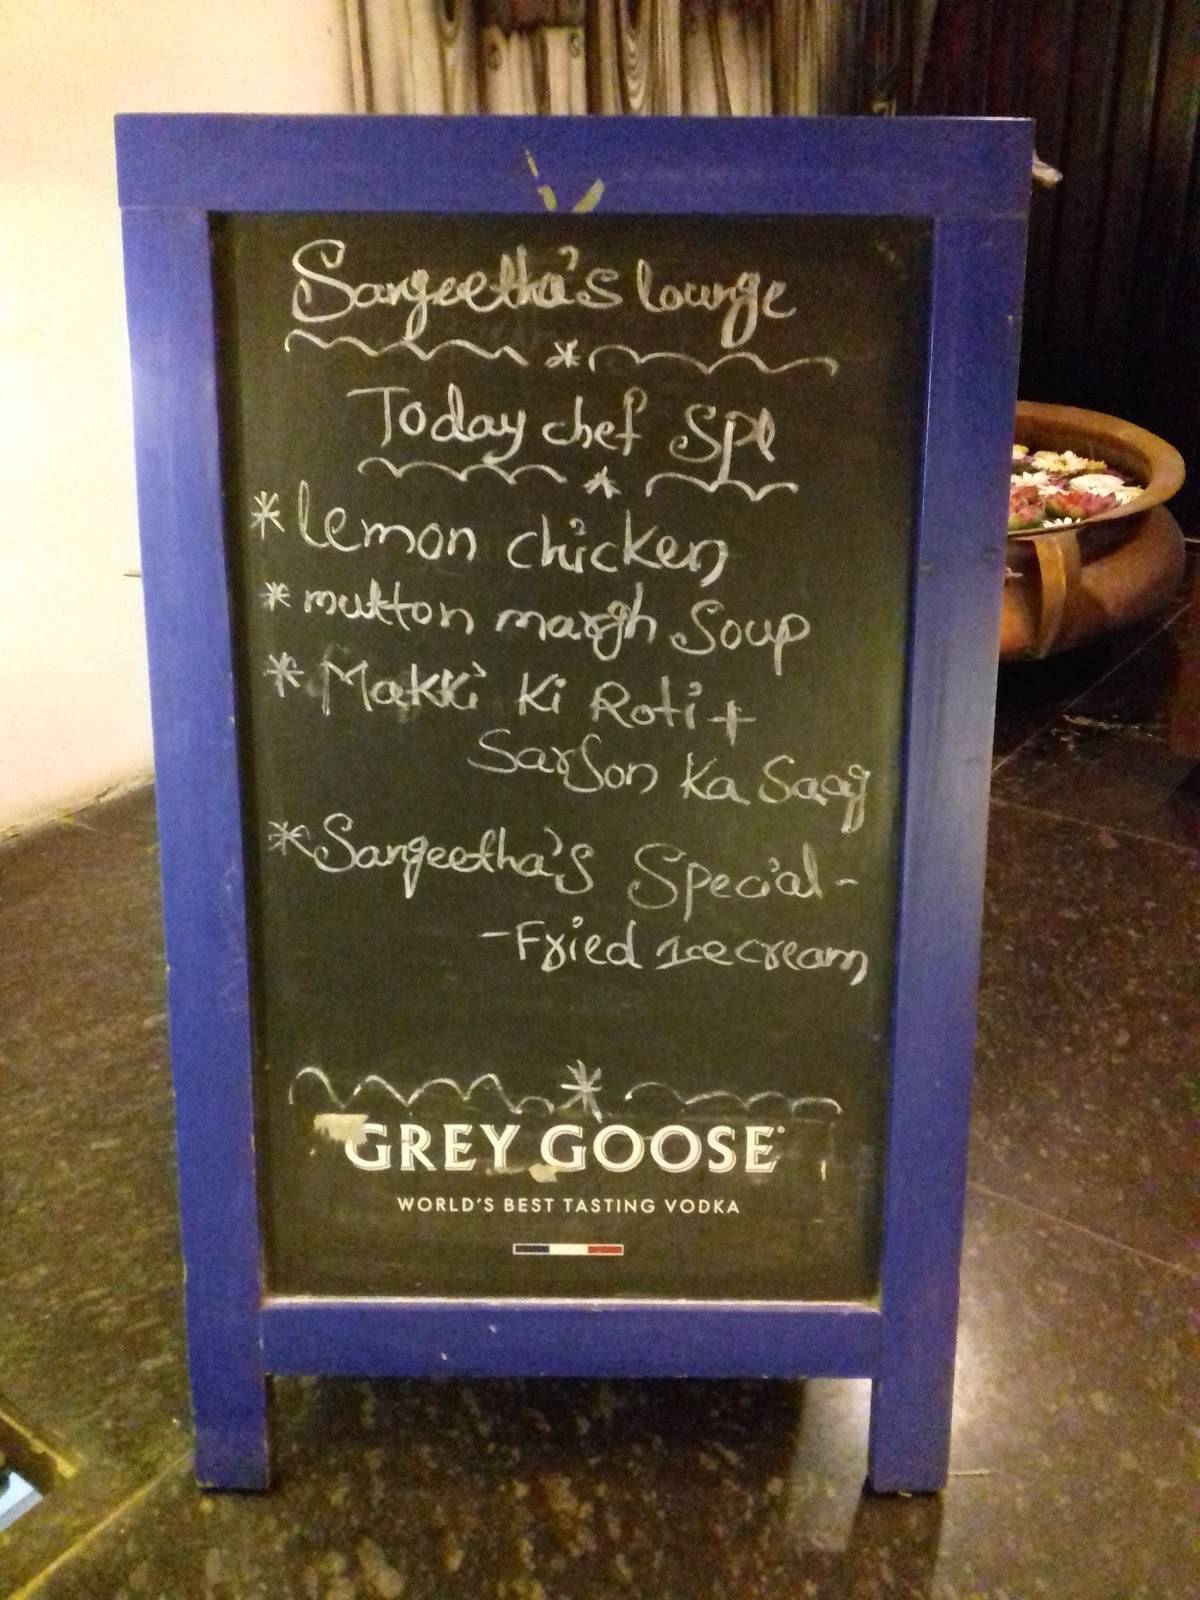 Sangeetha's lounge
Today chef SPl
* lemon chicken
* mutton margh Soup
* Makki Ki Roti +
Sarson Ka Saag
* Sangeetha's Special -
- Fried Icecream
GREY GOOSE
WORLD'S BEST TASTING VODKA